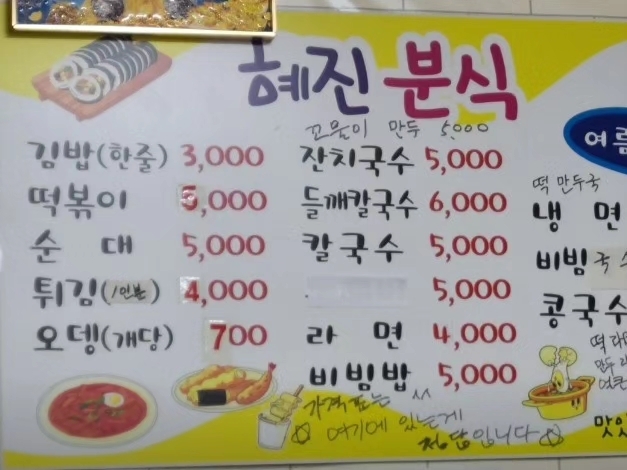 혜진 분식
꼬물이 만두 5,000
김밥(한줄) 3,000
떡볶이 5,000
순대 5,000
튀김(1인분) 4,000
오뎅(개당) 700
잔치국수 5,000
들깨칼국수 6,000
칼국수 5,000
5,000
라면 4,000
비빔밥 5,000
가격표는
여기에 있는게
정답입니다
여름
떡 만두국
냉면
비빔국수
콩국수